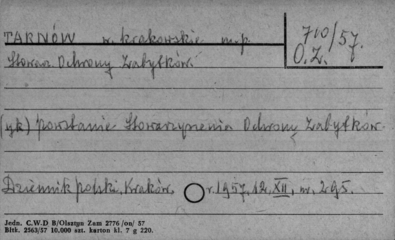 TARNÓW w. krakowskie m.p.
710/57.
O.Z.
Stowa. Ochrony Zabytków.
(yk) powstanie Stowarzyszenia Ochrony Zabytków.
Dziennik polski, Kraków. r. 1957, 12. XII, nr. 295.
Jedn. C.W.D B/Olsztyn Zam 2776/on/ 57
Błtk. 2563/57 10,000 szt. karton kl. 7 g 220.